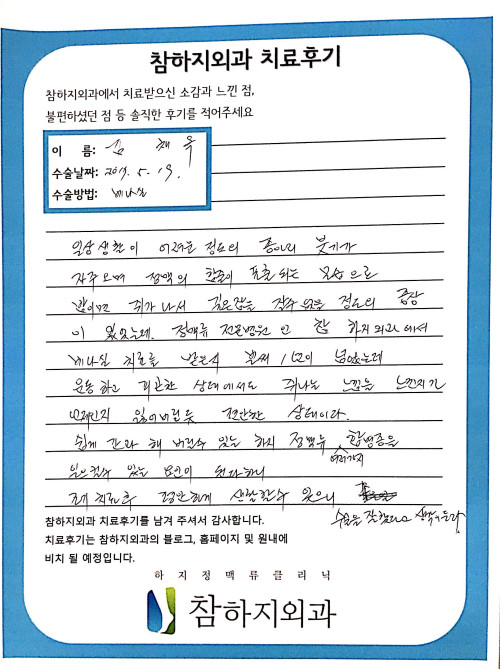 참하지외과 치료후기
참하지외과에서 치료받으신 소감과 느낀 점,
불편하셨던 점 등 솔직한 후기를 적어주세요
이 름: 김 채 옥
수술날짜: 2017. 5. 19.
수술방법: 베나실
일상생활이 어려운 정도의 종아리 붓기가
자주 오며 정맥의 돌출이 표출되는 모습으로
밤이면 쥐가 나서 깊은잠을 잘수 없을 정도의 증상
이 있었는데. 정맥류 전문병원 인 참 하지외과에서
베나실 치료를 받은지 벌써 1년이 넘었는데
운동 하고 피곤한 상태에서도 쥐나는 느낌을 느낀지가
언제인지 잃어버린듯 편안한 상태이다.
쉽게 간과 해 버릴수 있는 하지 정맥류 합병증을
여러가지
일으킬수 있는 요인이 된다하니
치료후 편안하게 생활할수 있으니
수술을 잘했다고 생각이 든다
참하지외과 치료후기를 남겨 주셔서 감사합니다.
치료후기는 참하지외과의 블로그, 홈페이지 및 원내에
비치 될 예정입니다.
하지정맥류클리닉
참하지외과